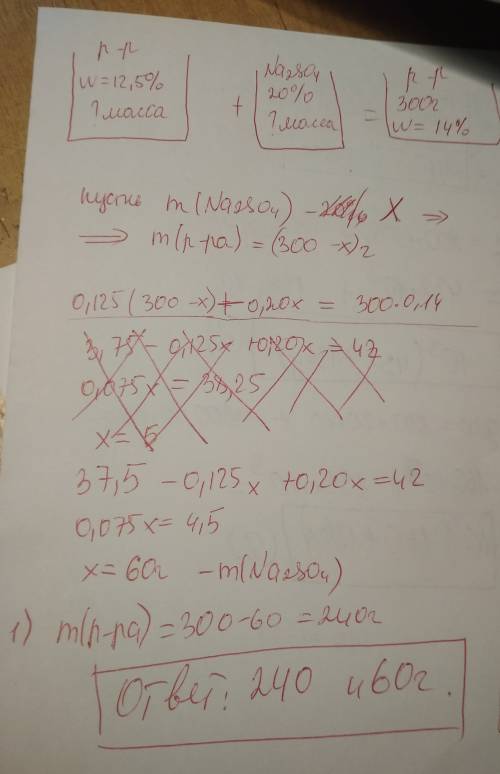 р-р
w=12,5%
? масса
+
Na2SO4
20%
? масса
=
р-р
300г
w = 14%
пусть m(Na2SO4) - X ⇒
⇒ m(р-ра) = (300 - x)г
0,125(300 - x) + 0,20x = 300·0,14
3,75 - 0,125x + 0,20x = 42
0,075x = 38,25
x = 5
37,5 - 0,125x + 0,20x = 42
0,075x = 4,5
x = 60г - m(Na2SO4)
1) m(р-ра) = 300-60 = 240г
Ответ: 240 и 60г.